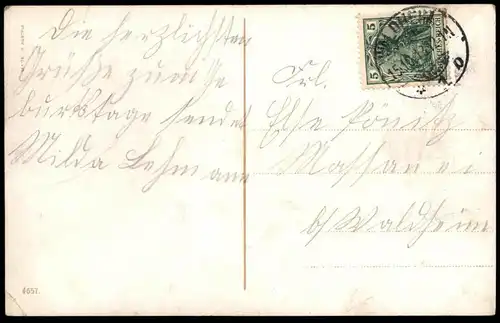 Die herzlichsten
Grüße zum Ge
burtstage sendet
Milda Lehmann
Frl.
Else Pönitz
Massanei
b/Waldheim
5
5
4657.